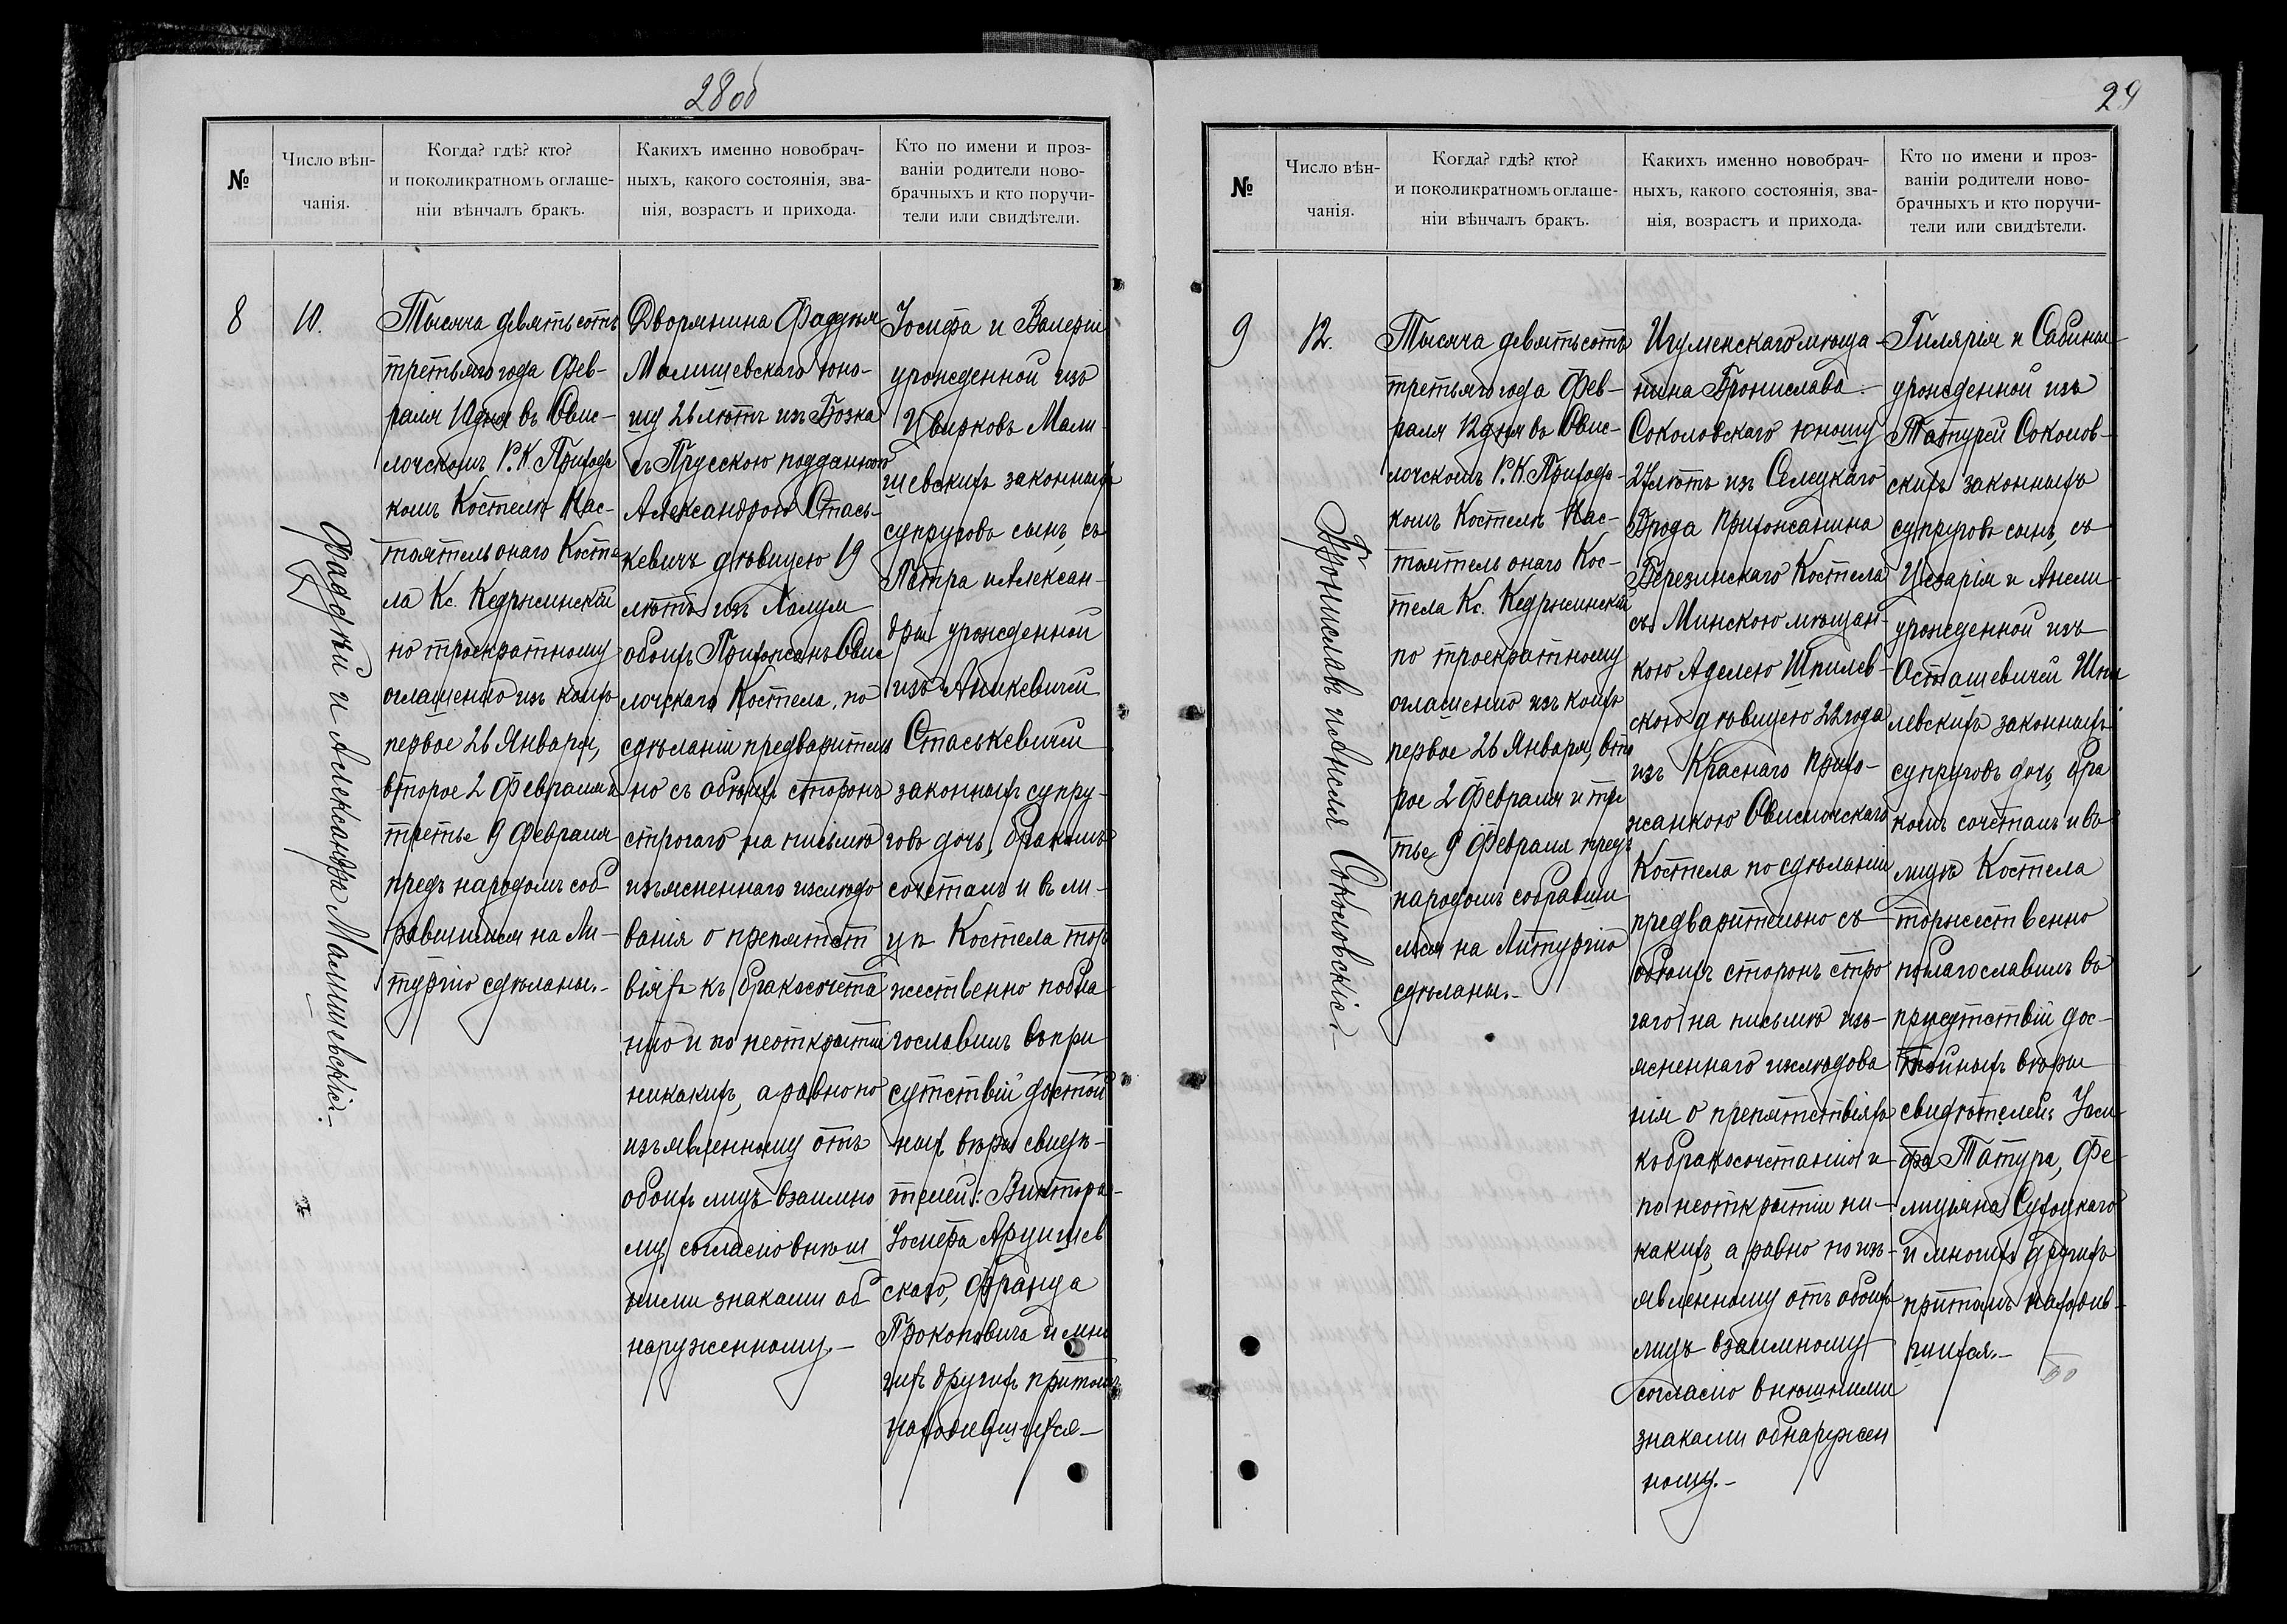 28об
№
Число вѣн-
чанія.
Когда? гдѣ? кто?
и поколикратномъ оглаше-
ніи вѣнчалъ бракъ.
Какихъ именно новобрач-
ныхъ, какого состоянія, зва-
нія, возрастъ и прихода.
Кто по имени и проз-
ваніи родители ново-
брачныхъ и кто поручи-
тели или свидѣтели.
8
10.
Фаддѣй и Александра Малишевскіе.
Тысяча девятьсотъ
третьяго года Фев-
раля 10 дня въ Свис-
лочскомъ Р. К. Приход-
комъ Костелѣ Нас-
тоятель онаго Косте
ла Кс. Кедржинскій
по троекратному
оглашенію изъ коихъ
первое 26 Января,
второе 2 Февраля и
третье 9 Февраля
предъ народомъ соб
равшимся на Ли-
тургію сдѣланы.-
Дворянина Фаддѣя
Малишевскаго юно-
шу 26 лѣтъ изъ
съ Прусскою подданною
Александрою Стась-
кевичъ дѣвицею 19
лѣтъ изъ
обоихъ Прихожанъ Свис
лочскаго Костела, по
сдѣланіи предваритель
но съ обѣихъ сторонъ
строгаго на письмѣ
изъясненнаго изслѣдо
ванія о препятст
віяхъ къ бракосочета
нію и по неоткрытіи
никакихъ, а равно по
изъявленному отъ
обоихъ лицъ взаимно
му согласію внѣш
ними знаками об
наруженному.-
Іосифа и Валеріи
урожденной изъ
Цвирковъ Мали-
шевскихъ законныхъ
супруговъ сынъ, съ
Петра и Алексан-
дры урожденной
изъ Аникевичей
Стаськевичей
законныхъ супру-
говъ дочь, бракомъ
сочеталъ и въ ли-
цѣ Костела тор
жественно побла
гословилъ въ при
сутствіи достой
ныхъ вѣры свидѣ-
телей: Виктора
Іосифа
скаго, Франца
Прокоповича и мно
гихъ другихъ притомъ
находившихся-
29
№
Число вѣн-
чанія.
Когда? гдѣ? кто?
и поколикратномъ оглаше-
ніи вѣнчалъ бракъ.
Какихъ именно новобрач-
ныхъ, какого состоянія, зва-
нія, возрастъ и прихода.
Кто по имени и проз-
ваніи родители ново-
брачныхъ и кто поручи-
тели или свидѣтели.
9
12.
Брониславъ и Анеля Соколовскіе.-
Тысяча девятьсотъ
третьяго года Фев-
раля 12 дня въ Свис-
лочскомъ Р. К. Приход-
комъ Костелѣ Нас-
тоятель онаго Кос-
тела Кс. Кедржинскій
по троекратному
оглашенію изъ коихъ
первое 26 Января, вто
рое 2 Февраля и тре
тье 9 Февраля предъ
народомъ собравши
мся на Литургію
сдѣланы.-
Игуменскаго мѣща-
нина Бронислава
Соколовскаго юношу
27 лѣтъ изъ Селецкаго
Брода прихожанина
Березинскаго Костела
съ Минскою мѣщан-
кою Аделею Шпилев-
скою дѣвицею 22 года
изъ Краснаго прихо-
жанкою Свислочскаго
Костела по сдѣланіи
предварительно съ
обоихъ сторонъ стро
гаго на письмѣ изъ-
ясненнаго изслѣдова
нія о препятствіяхъ
къ бракосочетанію и
по неоткрытіи ни-
какихъ, а равно по изъ-
явленному отъ обоихъ
лицъ взаимному
согласію внѣшними
знаками обнаружен
ному.-
Гилярія и Сабины
урожденной изъ
Татурей Соколов-
скихъ законныхъ
супруговъ сынъ, съ
Цезарія и Анели
урожденной изъ
Осташевичей Шпи
левскихъ законныхъ
супруговъ дочь, бра
комъ сочеталъ и въ
лицѣ Костела
торжественно
поблагославилъ въ
присутствіи дос-
тойныхъ вѣры
свидѣтелей: Іоси-
фа Татура, Фе-
лиціяна Сухоцкаго
и многихъ другихъ
притомъ находив-
шихся.-